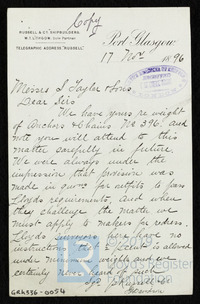 Copy
RUSSELL & CO. SHIPBUILDERS.
TELEGRAPHIC ADDRESS "RUSSELL"
Port Glasgow
17 Nov 1896
Messrs S Taylor & Sons.
Dear Sirs
We have yours re weight
of Anchors & Chains No 396. and
will you will attend to this
matter carefully in future.
We were always under the
impression that provision was
made in for outfits to pass
Lloyds requirements, and when
they challenge the matter we
must apply to makers for redress.
Lloyds Surveyors here have no
instructions that is allowed
under weights and we
certainly never heard of such.
GRL436-0054